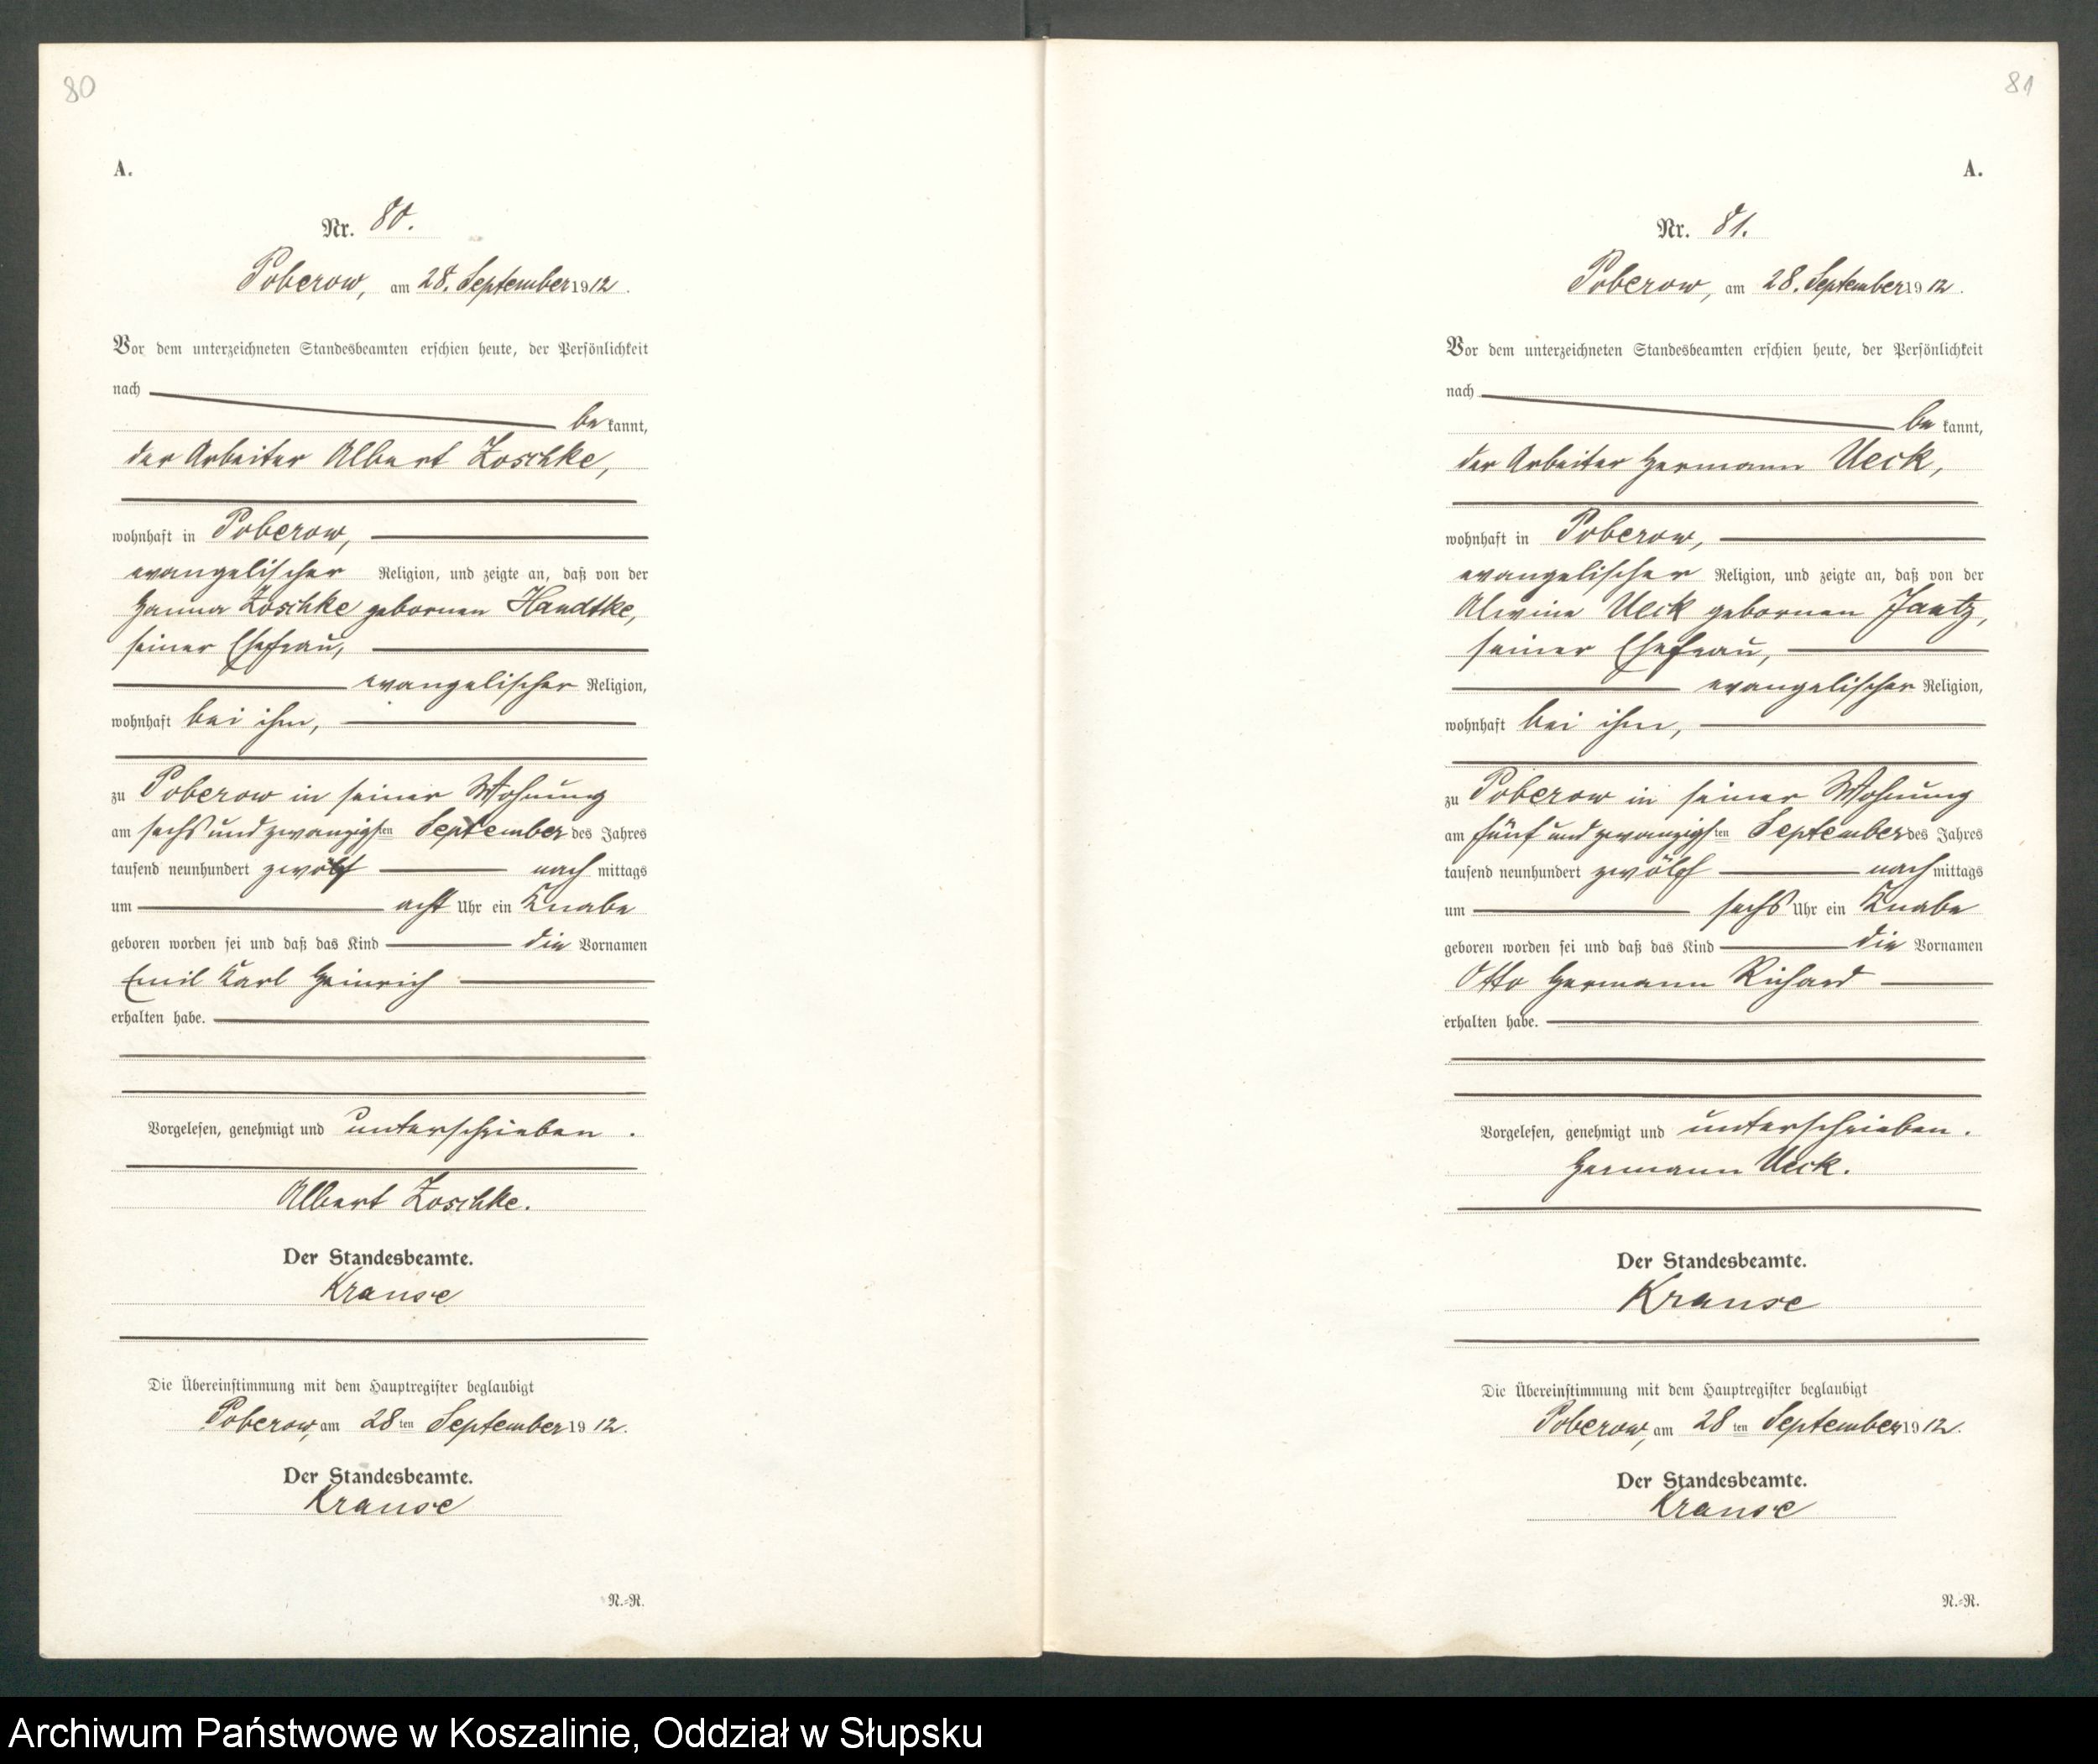 80
A.
Nr. 80.
Poberow, am 28. September 1912.
Vor dem unterzeichneten Standesbeamten erschien heute, der Persönlichkeit
nach
be kannt,
der Arbeiter Albert Zoschke,
wohnhaft in Poberow,
evangelischer Religion, und zeigte an, daß von der
Hanna Zoschke gebornen Handtke,
seiner Ehefrau,
evangelischer Religion,
wohnhaft bei ihm,
zu Poberow in seiner Wohnung
am sechs und zwanzigsten September des Jahres
tausend neunhundert zwölf nach mittags
um acht Uhr ein Knabe
geboren worden sei und daß das Kind die Vornamen
Emil Karl Heinrich
erhalten habe.
Vorgelesen, genehmigt und unterschrieben.
Albert Zoschke.
Der Standesbeamte.
Krause
Die Übereinstimmung mit dem Hauptregister beglaubigt
Poberow, am 28ten September 1912.
Der Standesbeamte.
Krause
N.=R.
81
A.
Nr. 81.
Poberow, am 28. September 1912.
Vor dem unterzeichneten Standesbeamten erschien heute, der Persönlichkeit
nach
be kannt,
der Arbeiter Hermann Ueck,
wohnhaft in Poberow,
evangelischer Religion, und zeigte an, daß von der
Alwine Ueck gebornen Jantz,
seiner Ehefrau,
evangelischer Religion,
wohnhaft bei ihm,
zu Poberow in seiner Wohnung
am fünf und zwanzigsten September des Jahres
tausend neunhundert zwölf nach mittags
um sechs Uhr ein Knabe
geboren worden sei und daß das Kind die Vornamen
Otto Hermann Richard
erhalten habe.
Vorgelesen, genehmigt und unterschrieben.
Hermann Ueck.
Der Standesbeamte.
Krause
Die Übereinstimmung mit dem Hauptregister beglaubigt
Poberow, am 28ten September 1912.
Der Standesbeamte.
Krause
N.=R.
Archiwum Państwowe w Koszalinie, Oddział w Słupsku